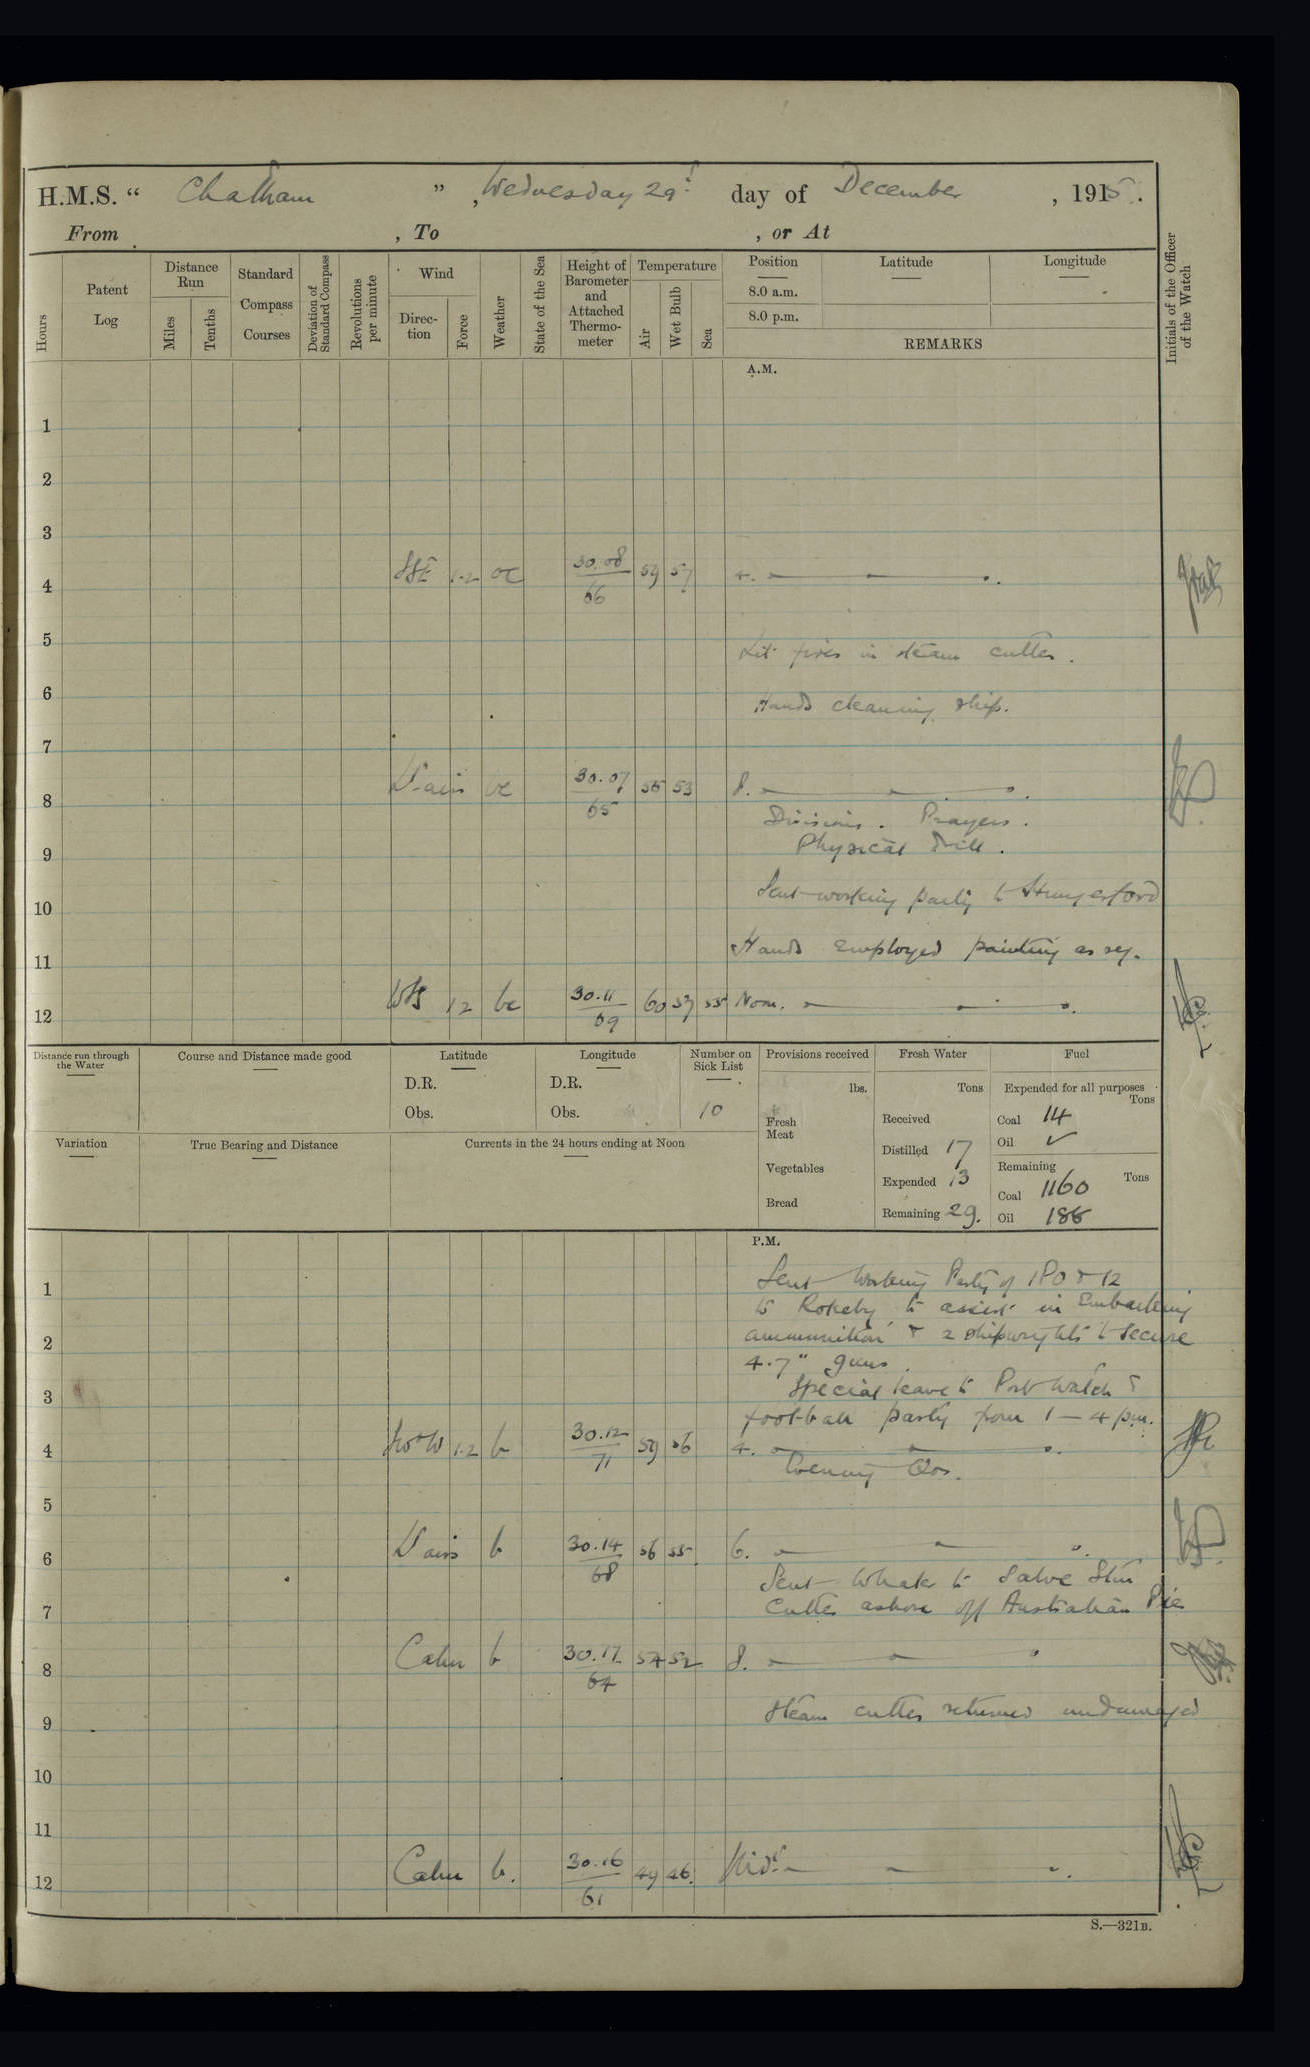 H.M.S. “ Chatham ” , Wednesday 29th day of December , 1915.
From , To , or At
Hours
Patent Log
Distance Run
Miles
Tenths
Standard Compass Courses
Deviation of Standard Compass
Revolutions per minute
Wind
Direction
Force
Weather
State of the Sea
Height of Barometer and Attached Thermometer
Temperature
Air
Wet Bulb
Sea
Position
8.0 a.m.
8.0 p.m.
Latitude
Longitude
REMARKS
Initials of the Officer of the Watch
A.M.
1
2
3
4 SSE 1-2 oc 30.08 66 59 57 4.
5
Lit fires in steam cutter.
6
Hands cleaning ship.
7
8 airs bc 30.07 65 55 53 8.
Divisions. Prayers.
9 Physical Drill.
Sent working party to Hungerford
10
Hands employed painting as req.
11
12 1 2 bc 30.11 69 60 57 55 Noon.
Distance run through the Water
Course and Distance made good
Latitude
D.R.
Obs.
Longitude
D.R.
Obs.
Number on Sick List
10
Provisions received
lbs.
Fresh Meat
Vegetables
Bread
Fresh Water
Tons
Received
Distilled 17
Expended 13
Remaining 29.
Fuel
Expended for all purposes
Tons
Coal 14
Oil ✓
Remaining
Tons
Coal 1160
Oil 186
Variation
True Bearing and Distance
Currents in the 24 hours ending at Noon
P.M.
1 Sent Working Party of 1 PO & 12
to Rokeby to assist in Embarking
2 ammunition & 2 shipwrights to secure
4.7" guns.
3 Special leave to Port Watch &
football party from 1 — 4 p.m.
4 1-2 b 30.12 71 59 56 4.
Evening Qrs.
5
6 airs b 30.14 68 56 55 6.
Sent Whaler to Salve Stm
7 Cutter ashore off Australian Pier
8 Calm b 30.17 64 54 52 8.
9 Steam cutter returned undamaged
10
11
12 Calm b. 30.16 61 49 46. Midt.
S.—321B.